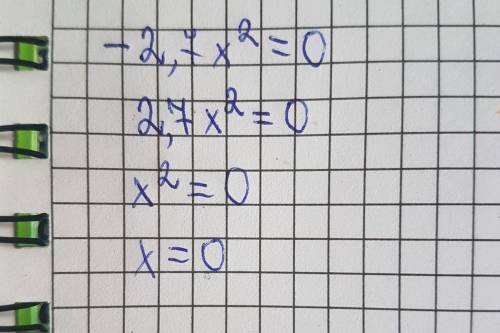 - 2,7x² = 0
2,7x² = 0
x² = 0
x = 0